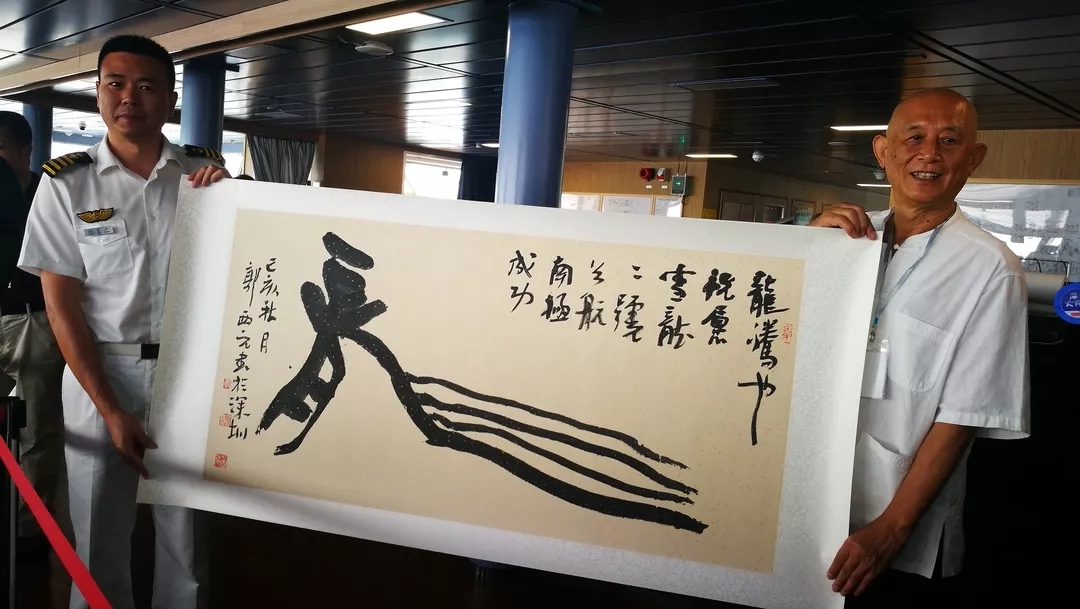 龍騰
祝愿
雪龍
二號
首航
南極
成功
己亥秋月
郭西元畫於深圳